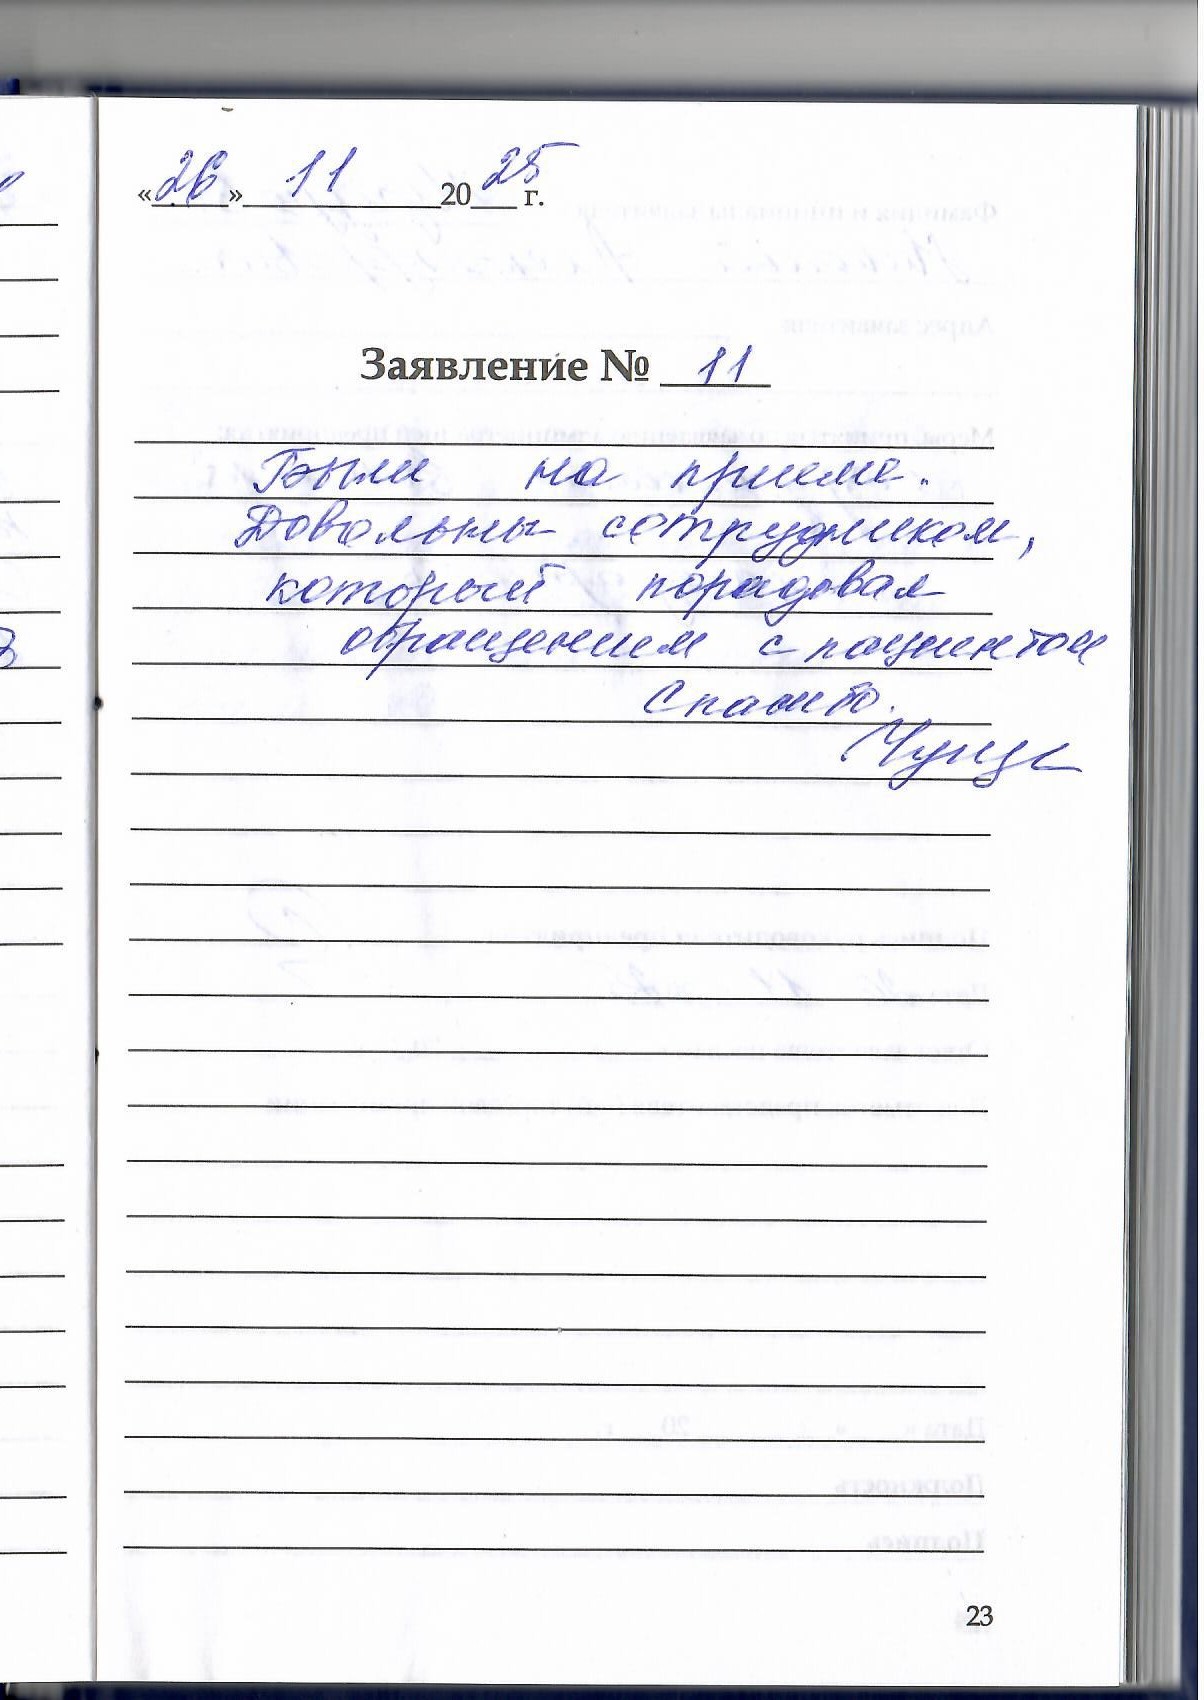 «26» 11 2025 г.
Заявление № 11
Были на приеме.
Довольны сотрудником,
который порадовал
обращением с пациентом
Спасибо.
23